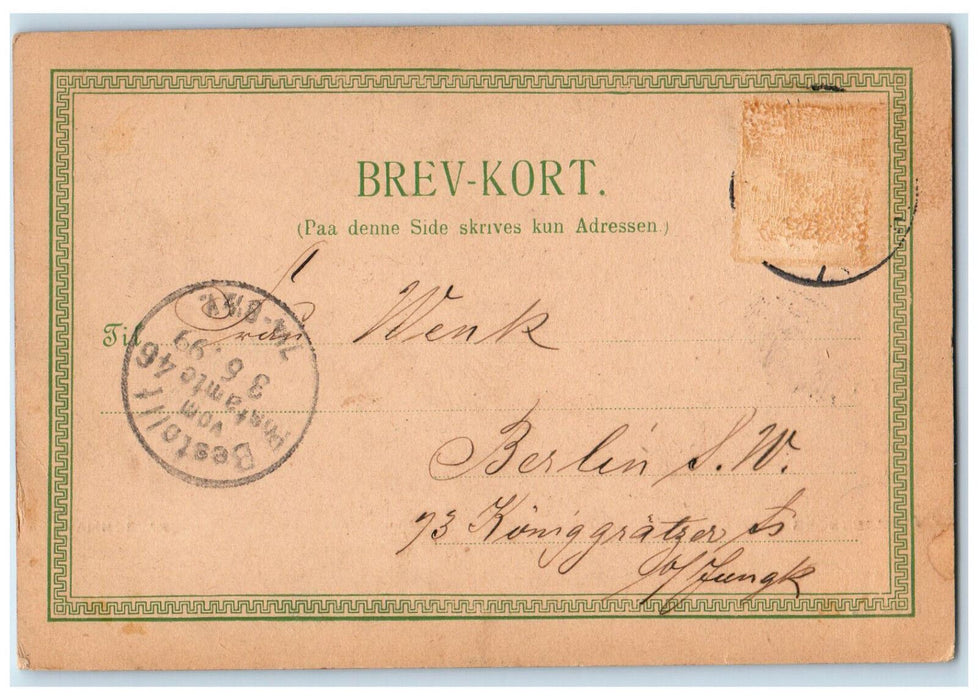 BREV-KORT.
(Paa denne Side skrives kun Adressen.)
Til Frau Wenk
Berlin S.W.
73 Königgrätzer St
b/Jungk
Bestellt
vom
Postamte 46
3 6 .99
7¼-8½V.